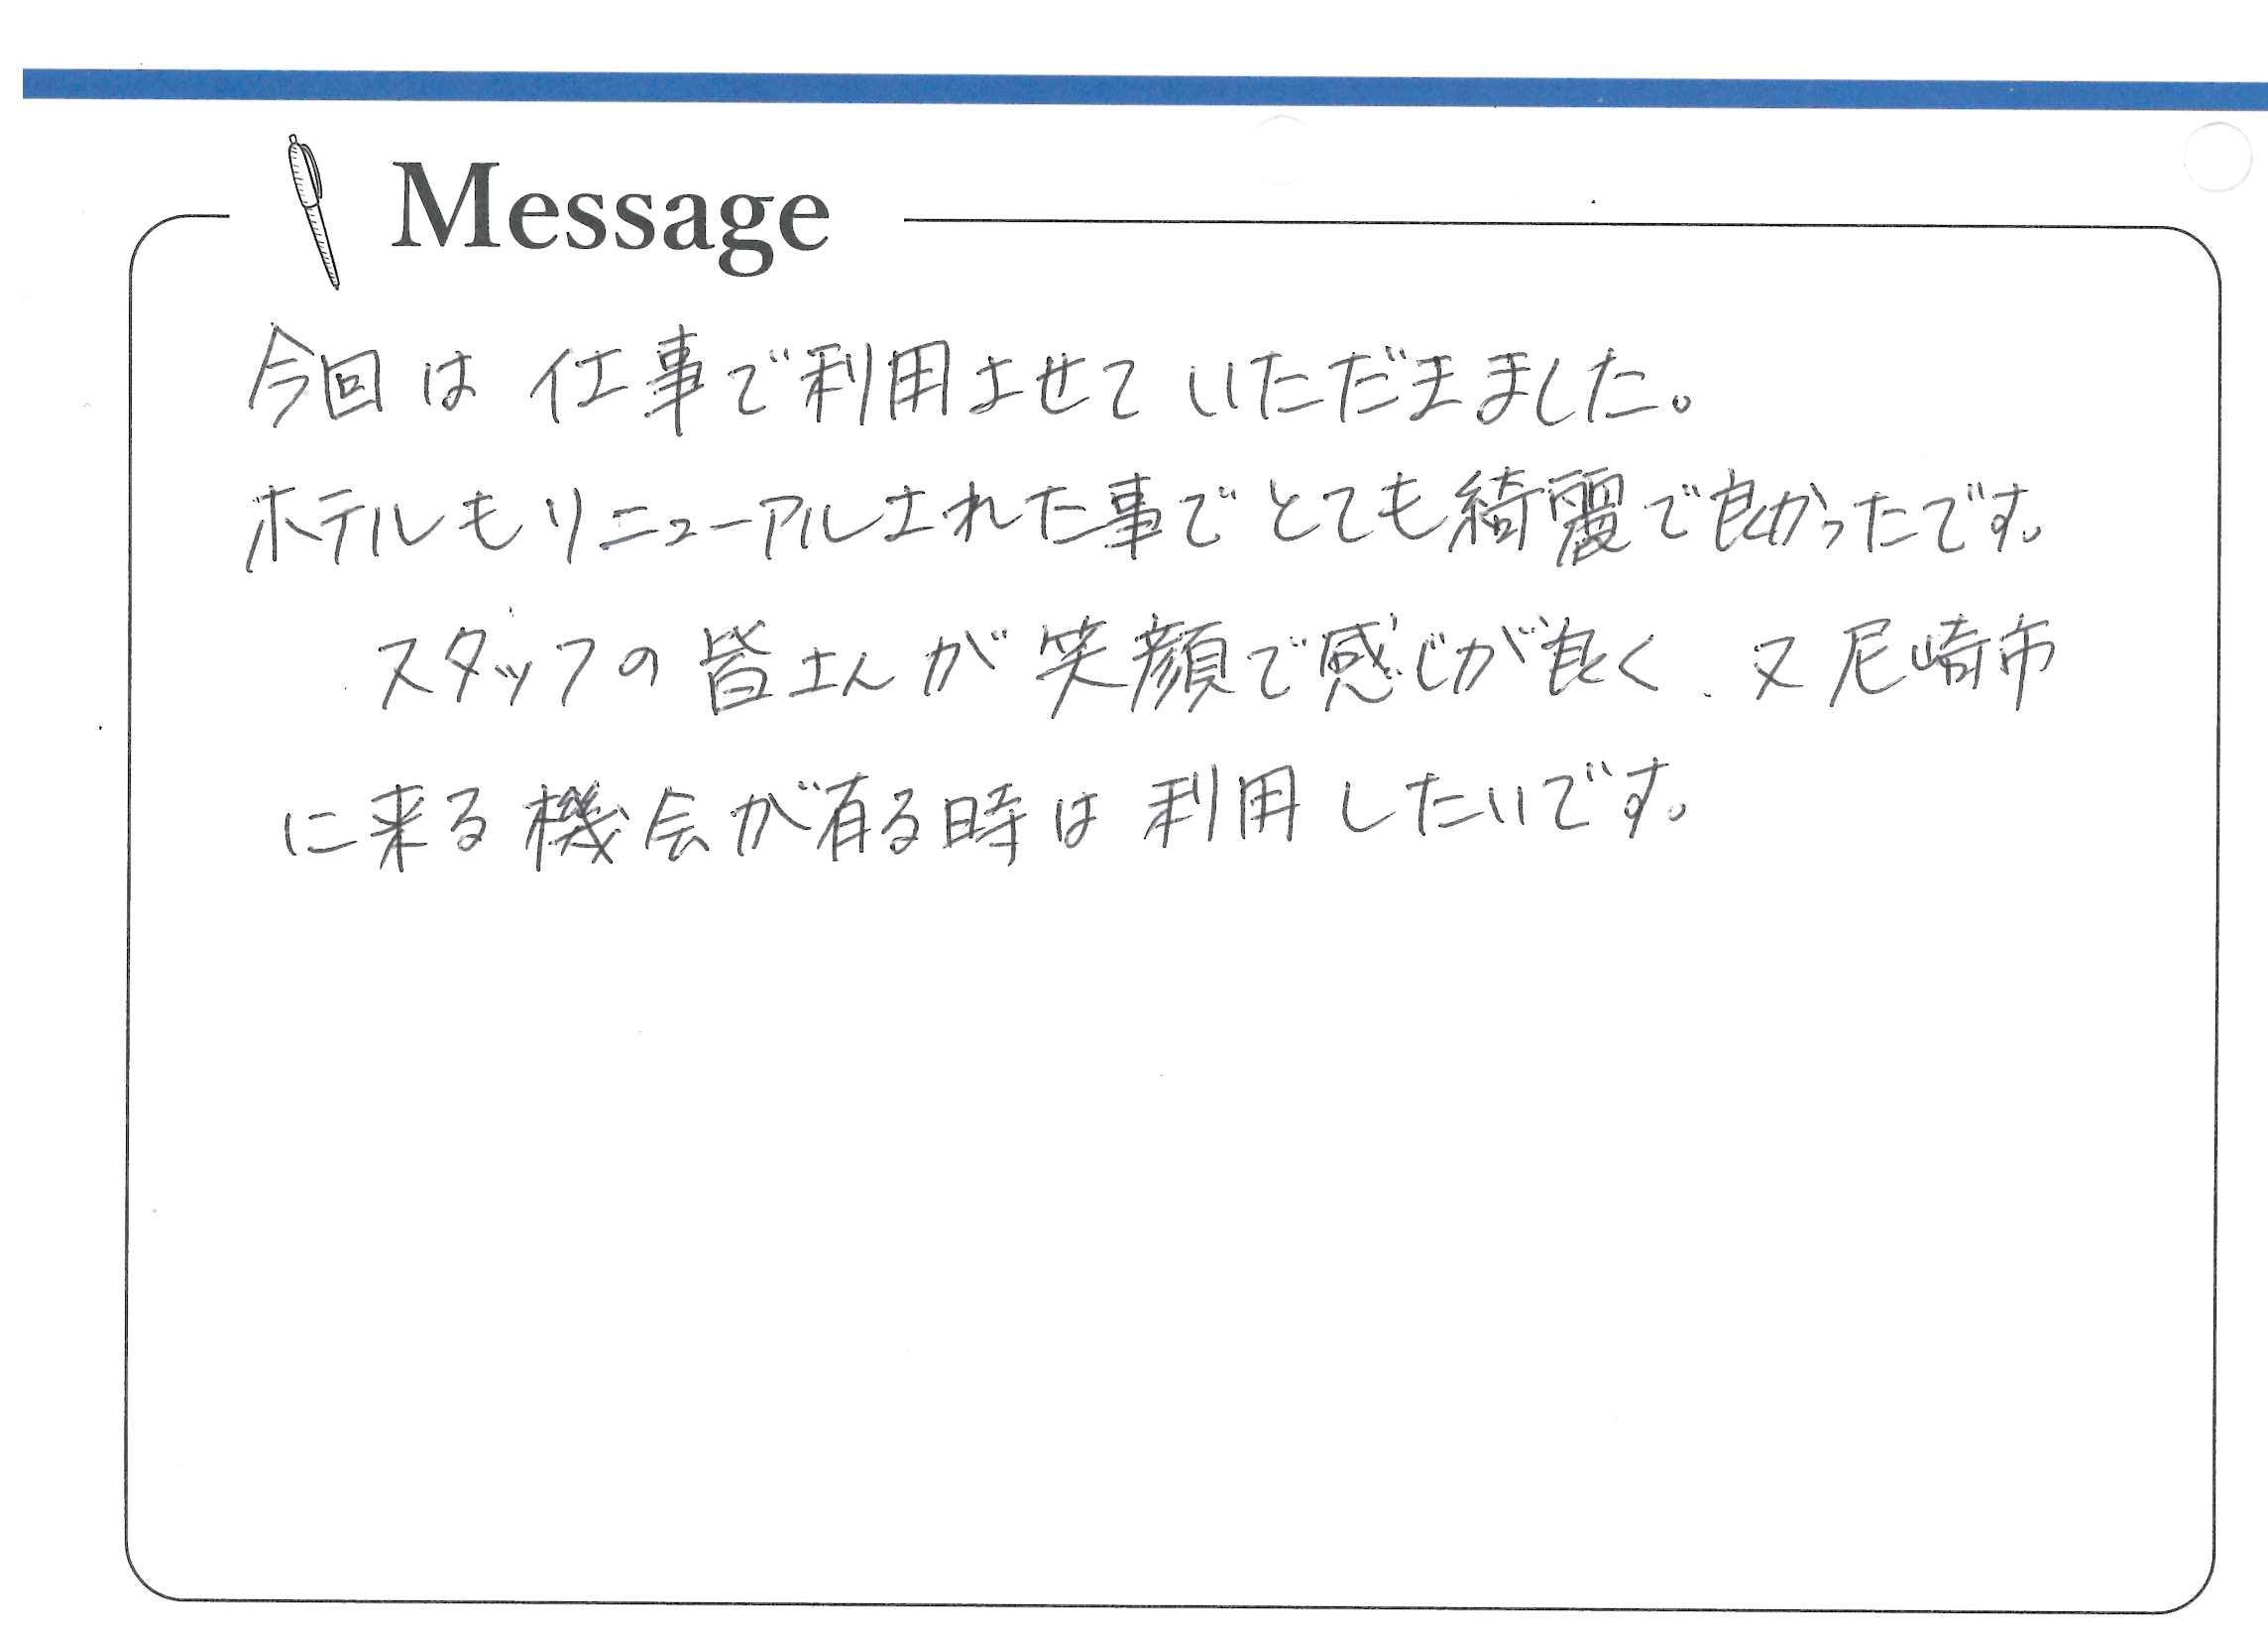 Message
今回は仕事で利用させていただきました。
ホテルもリニューアルされた事でとても綺麗で良かったです。
スタッフの皆さんが笑顔で感じが良く、又尼崎市
に来る機会が有る時は利用したいです。